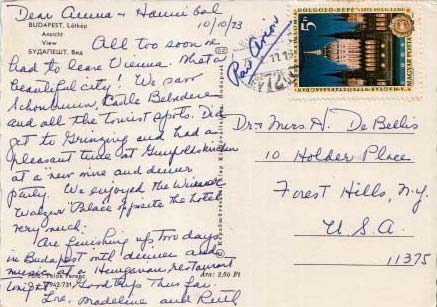 Dear Anna + Hannibal
10/10/73
BUDAPEST. Látkép
Ansicht
View
БУДАПЕШТ. Вид
All too soon we
had to leave Vienna. What a
beautiful city! We saw
Schönbrunn, Castle Belvedere
and all the tourist spots. Did
get to Grinzing and had a
pleasant time at
at a new wine and dinner
party. We enjoyed the Wiener
Walzer Palace opposite the hotel
very much.
Are finishing up two days
in Budapest with dinner and
music at a Hungarian restaurant
tonight. Good trip thus far.
Love, Madeline and Ruth
Foto: Ferenc
Ára: 2,60 Ft
Par Avion
5 Ft
MAGYAR POSTA
Dr. + Mrs. H. De Bellis
10 Holder Place
Forest Hills, N.Y.
U.S.A.
11375